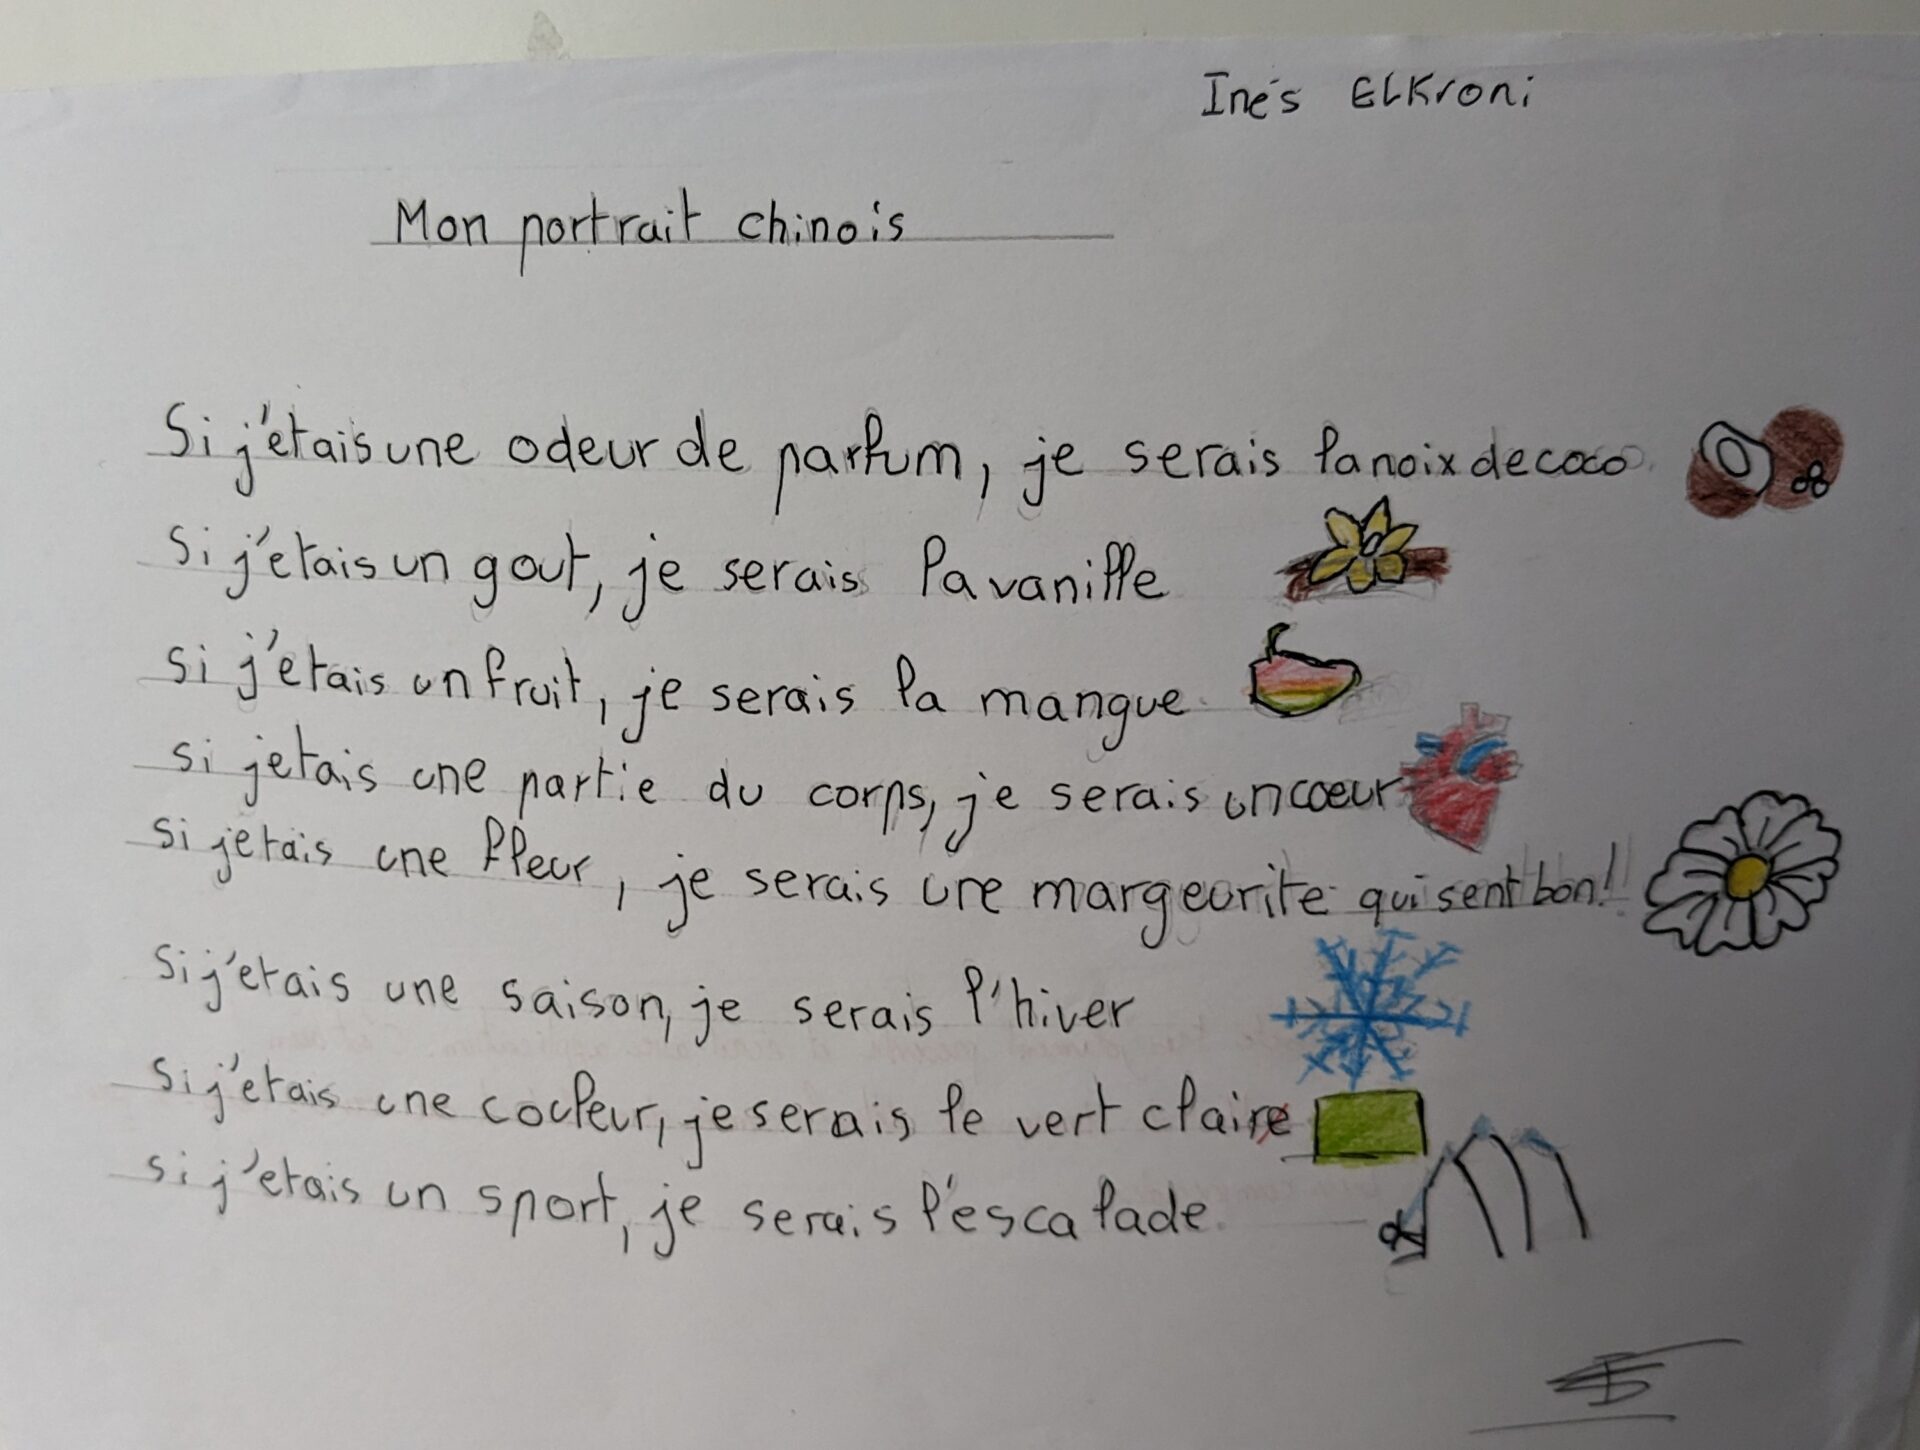 Inés ElKroni
Mon portrait chinois
Si j'étais une odeur de parfum, je serais la noix de coco
Si j'étais un gout, je serais la vanille
Si j'étais un fruit, je serais la mangue
si jetais une partie du corps, je serais un coeur
si jetais une fleur, je serais une margeurite qui sent bon!
Si j'etais une saison, je serais l'hiver
Si j'etais une couleur, je serais le vert claire
si j'etais un sport, je serais l'éscalade.